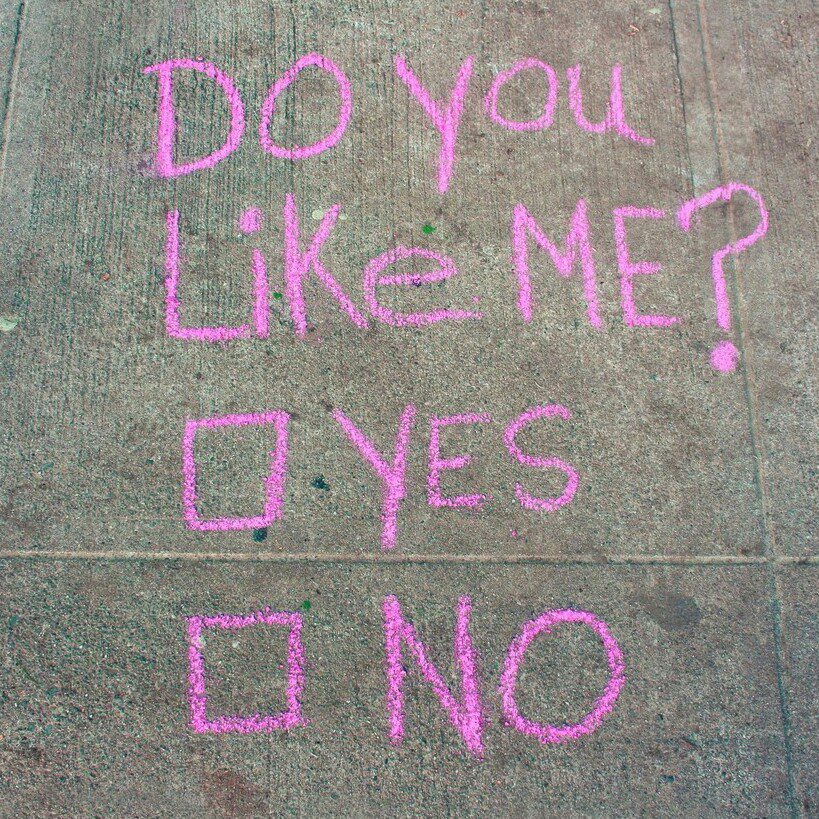 DO you
LiKe ME?
YES
NO